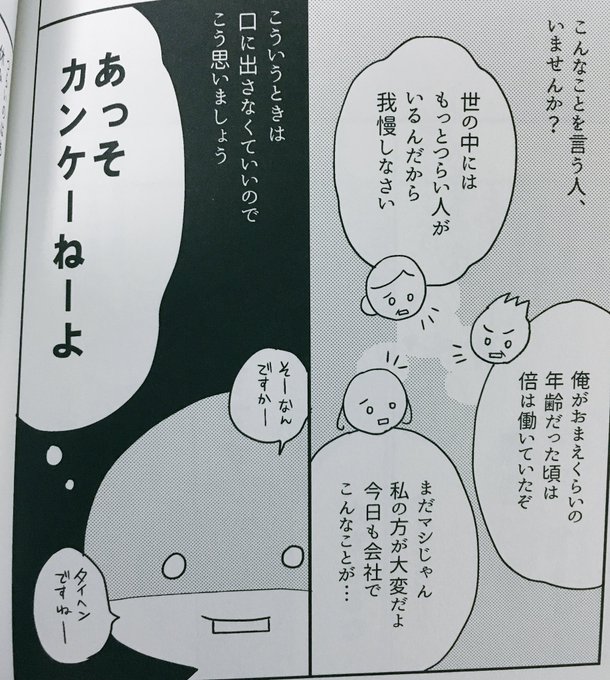 こんなことを言う人、
いませんか？
世の中には
もっとつらい人が
いるんだから
我慢しなさい
俺がおまえくらいの
年齢だった頃は
倍は働いていたぞ
まだマシじゃん
私の方が大変だよ
今日も会社で
こんなことが…
こういうときは
口に出さなくていいので
こう思いましょう
あっそ
カンケーねーよ
そーなん
ですかー
タイヘン
ですねー